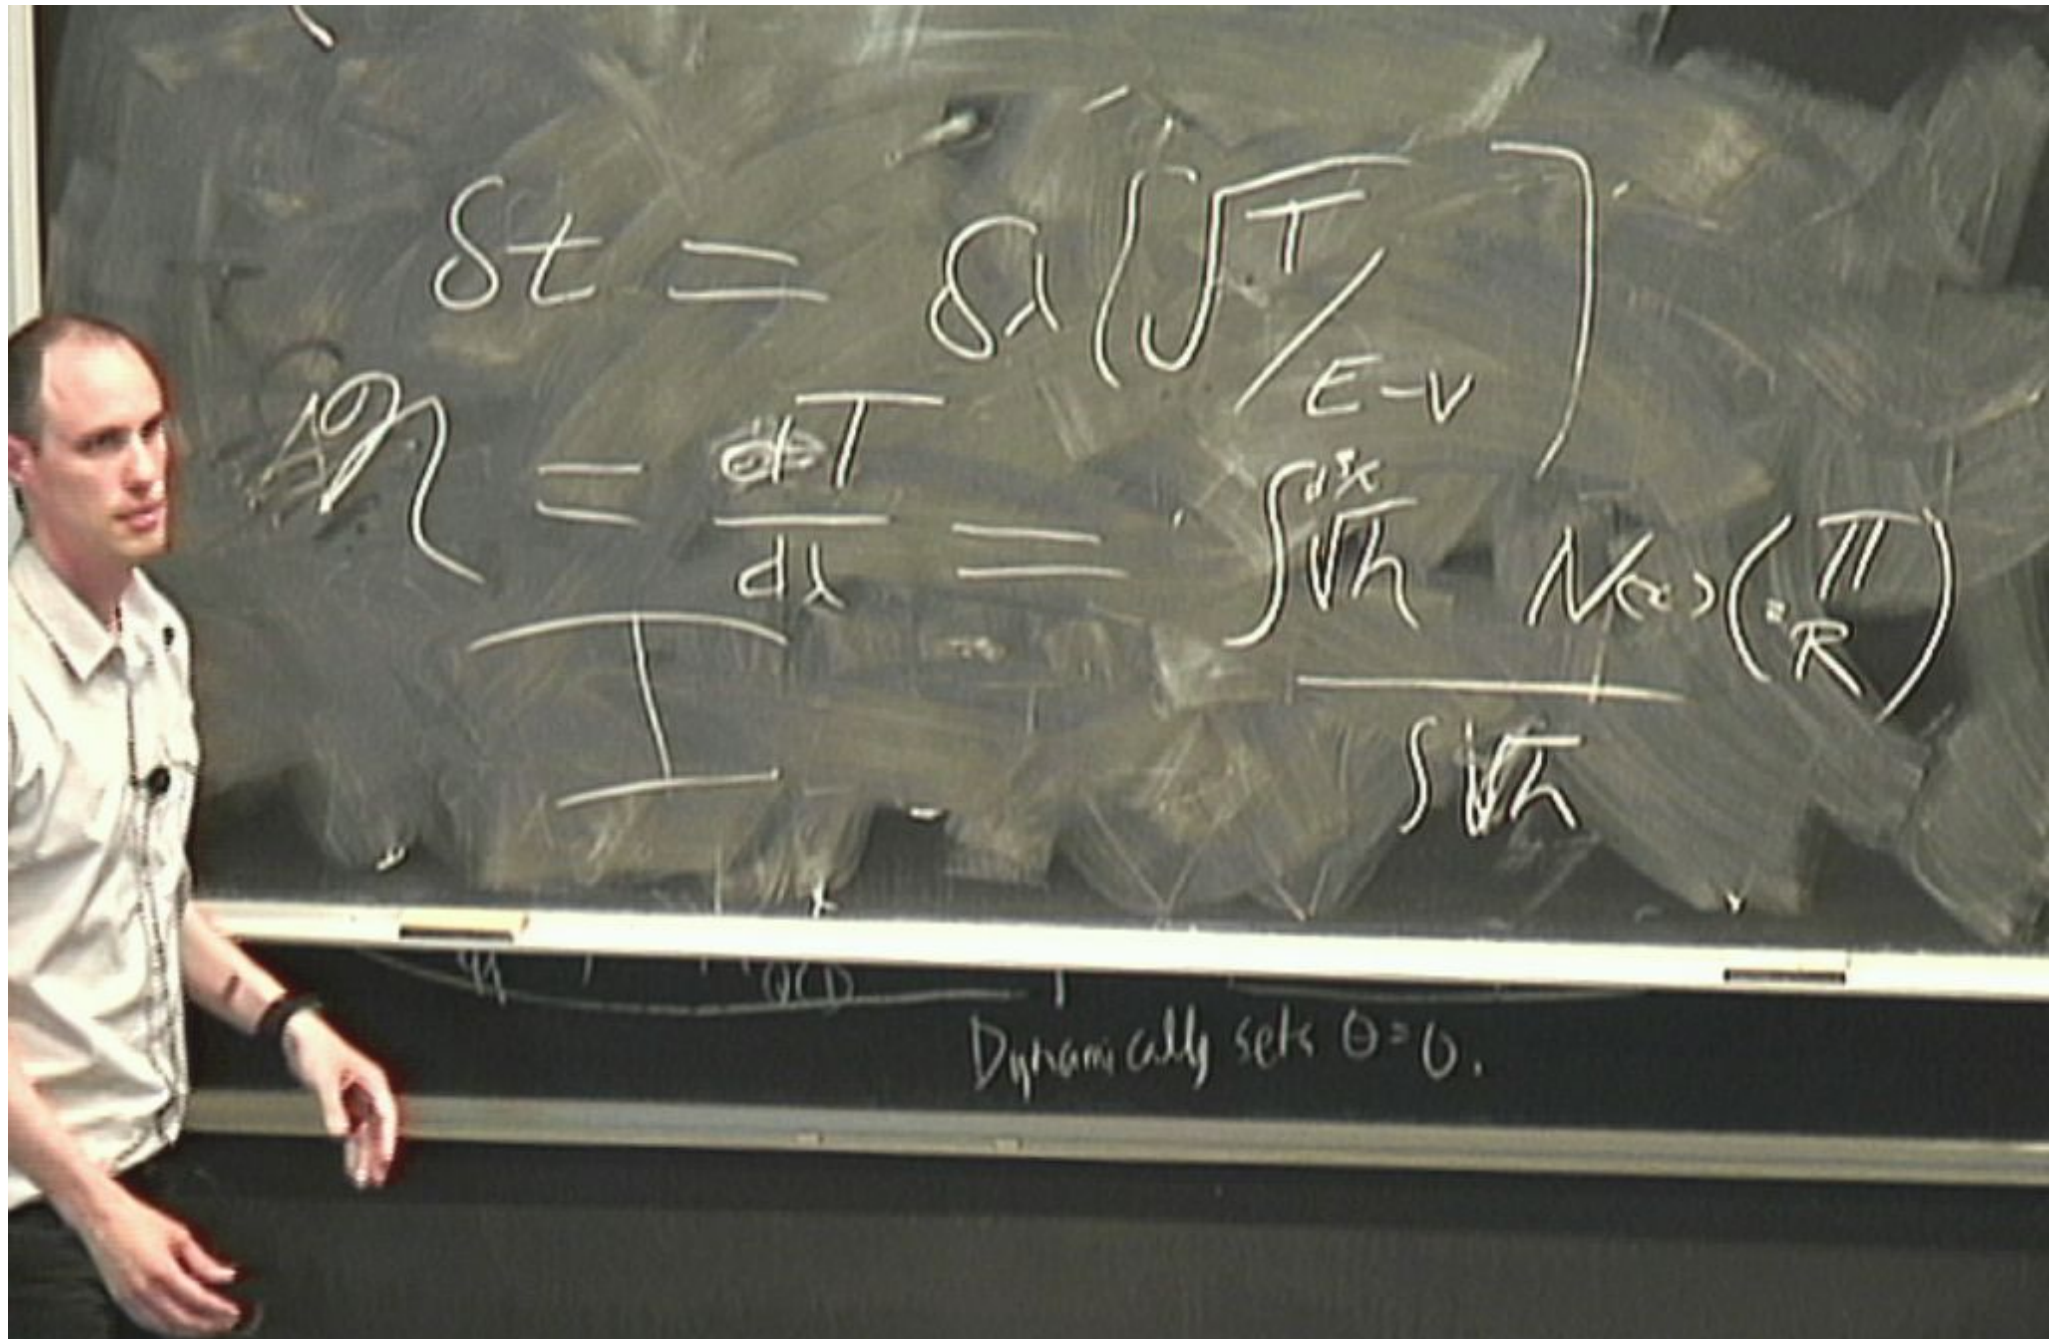 δt = δλ [√T / E-V]
η = dT/dλ = ∫d³x √h N(x) (π/R) / ∫√h
QCD
Dynamically sets θ=0.